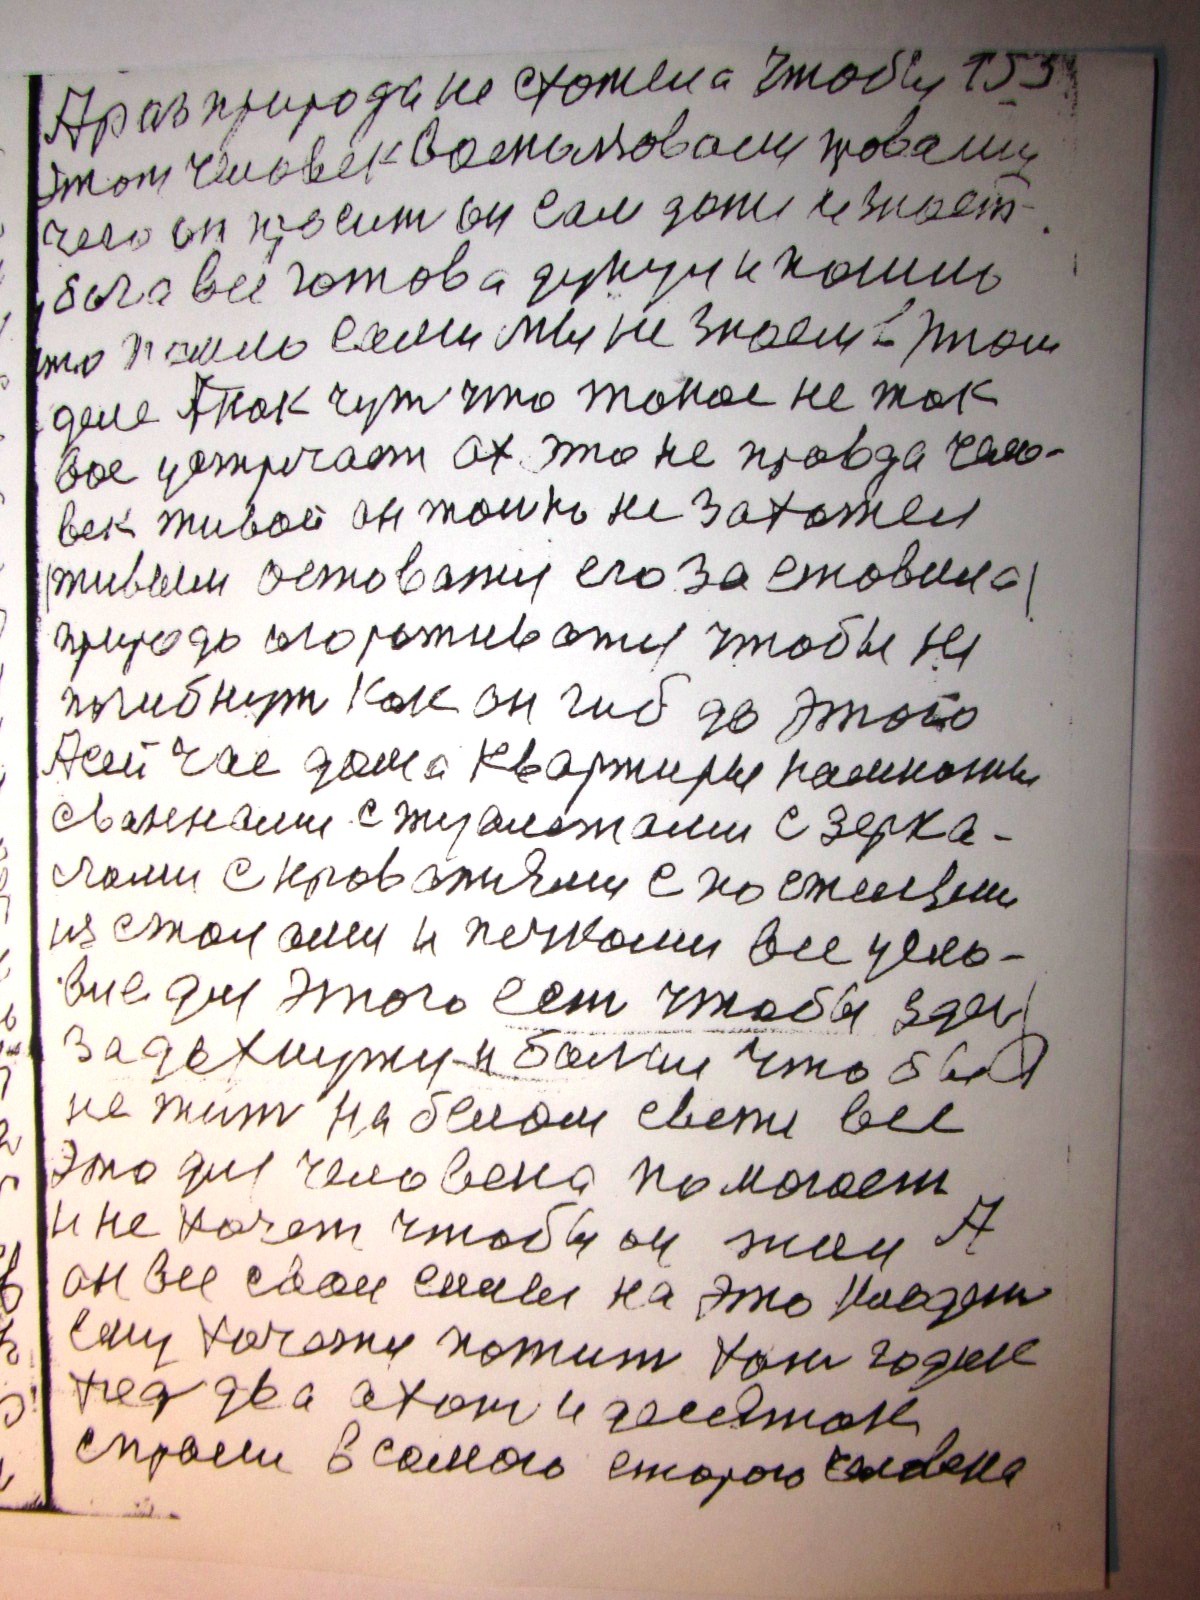 А раз природа не схотела чтобы 153
этот человек воспользовалси правами
чего он просит он сам даже не знает.
была все готова думуи и пошло
то пошло сами мы не знаем в этом
деле А как чут что такое не так
вое устричает ах это не правда чело-
век живой он только не захотел
живым оставатися его заставила
природа огораживатися чтобы не
погибнут как он гиб до этого
А сей час дома квартиры комнаты
с ваннами с туалетами с зерка-
лами с кроватиями с постилями
из столами и печками все усло-
вие для этого ест чтобы зде
задохнутися и болти что бы
не жит на белом свете все
это для человека помогает
и не хочет чтобы он жил А
он все свои силы на это кладет
ему хочетси пожит хот годик
хед два а хот и десяток
спроси в самого старого человека